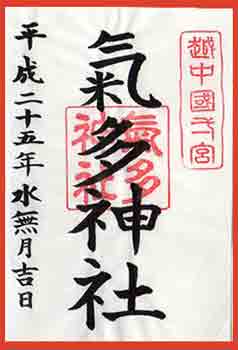 越中國弌宮
氣多神社
氣多
神社
平成二十五年水無月吉日